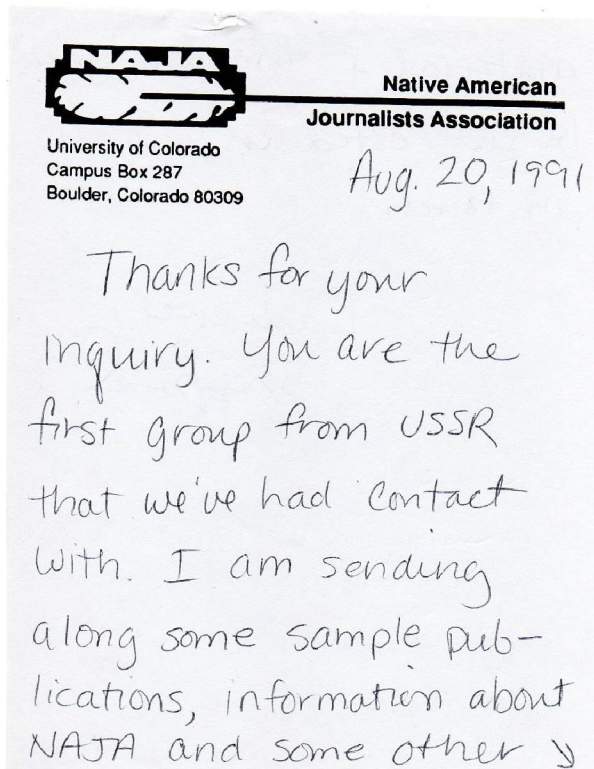 NAJA
Native American
Journalists Association
University of Colorado
Campus Box 287
Boulder, Colorado 80309
Aug. 20, 1991
Thanks for your
inquiry. You are the
first group from USSR
that we've had contact
with. I am sending
along some sample pub-
lications, information about
NAJA and some other ↘